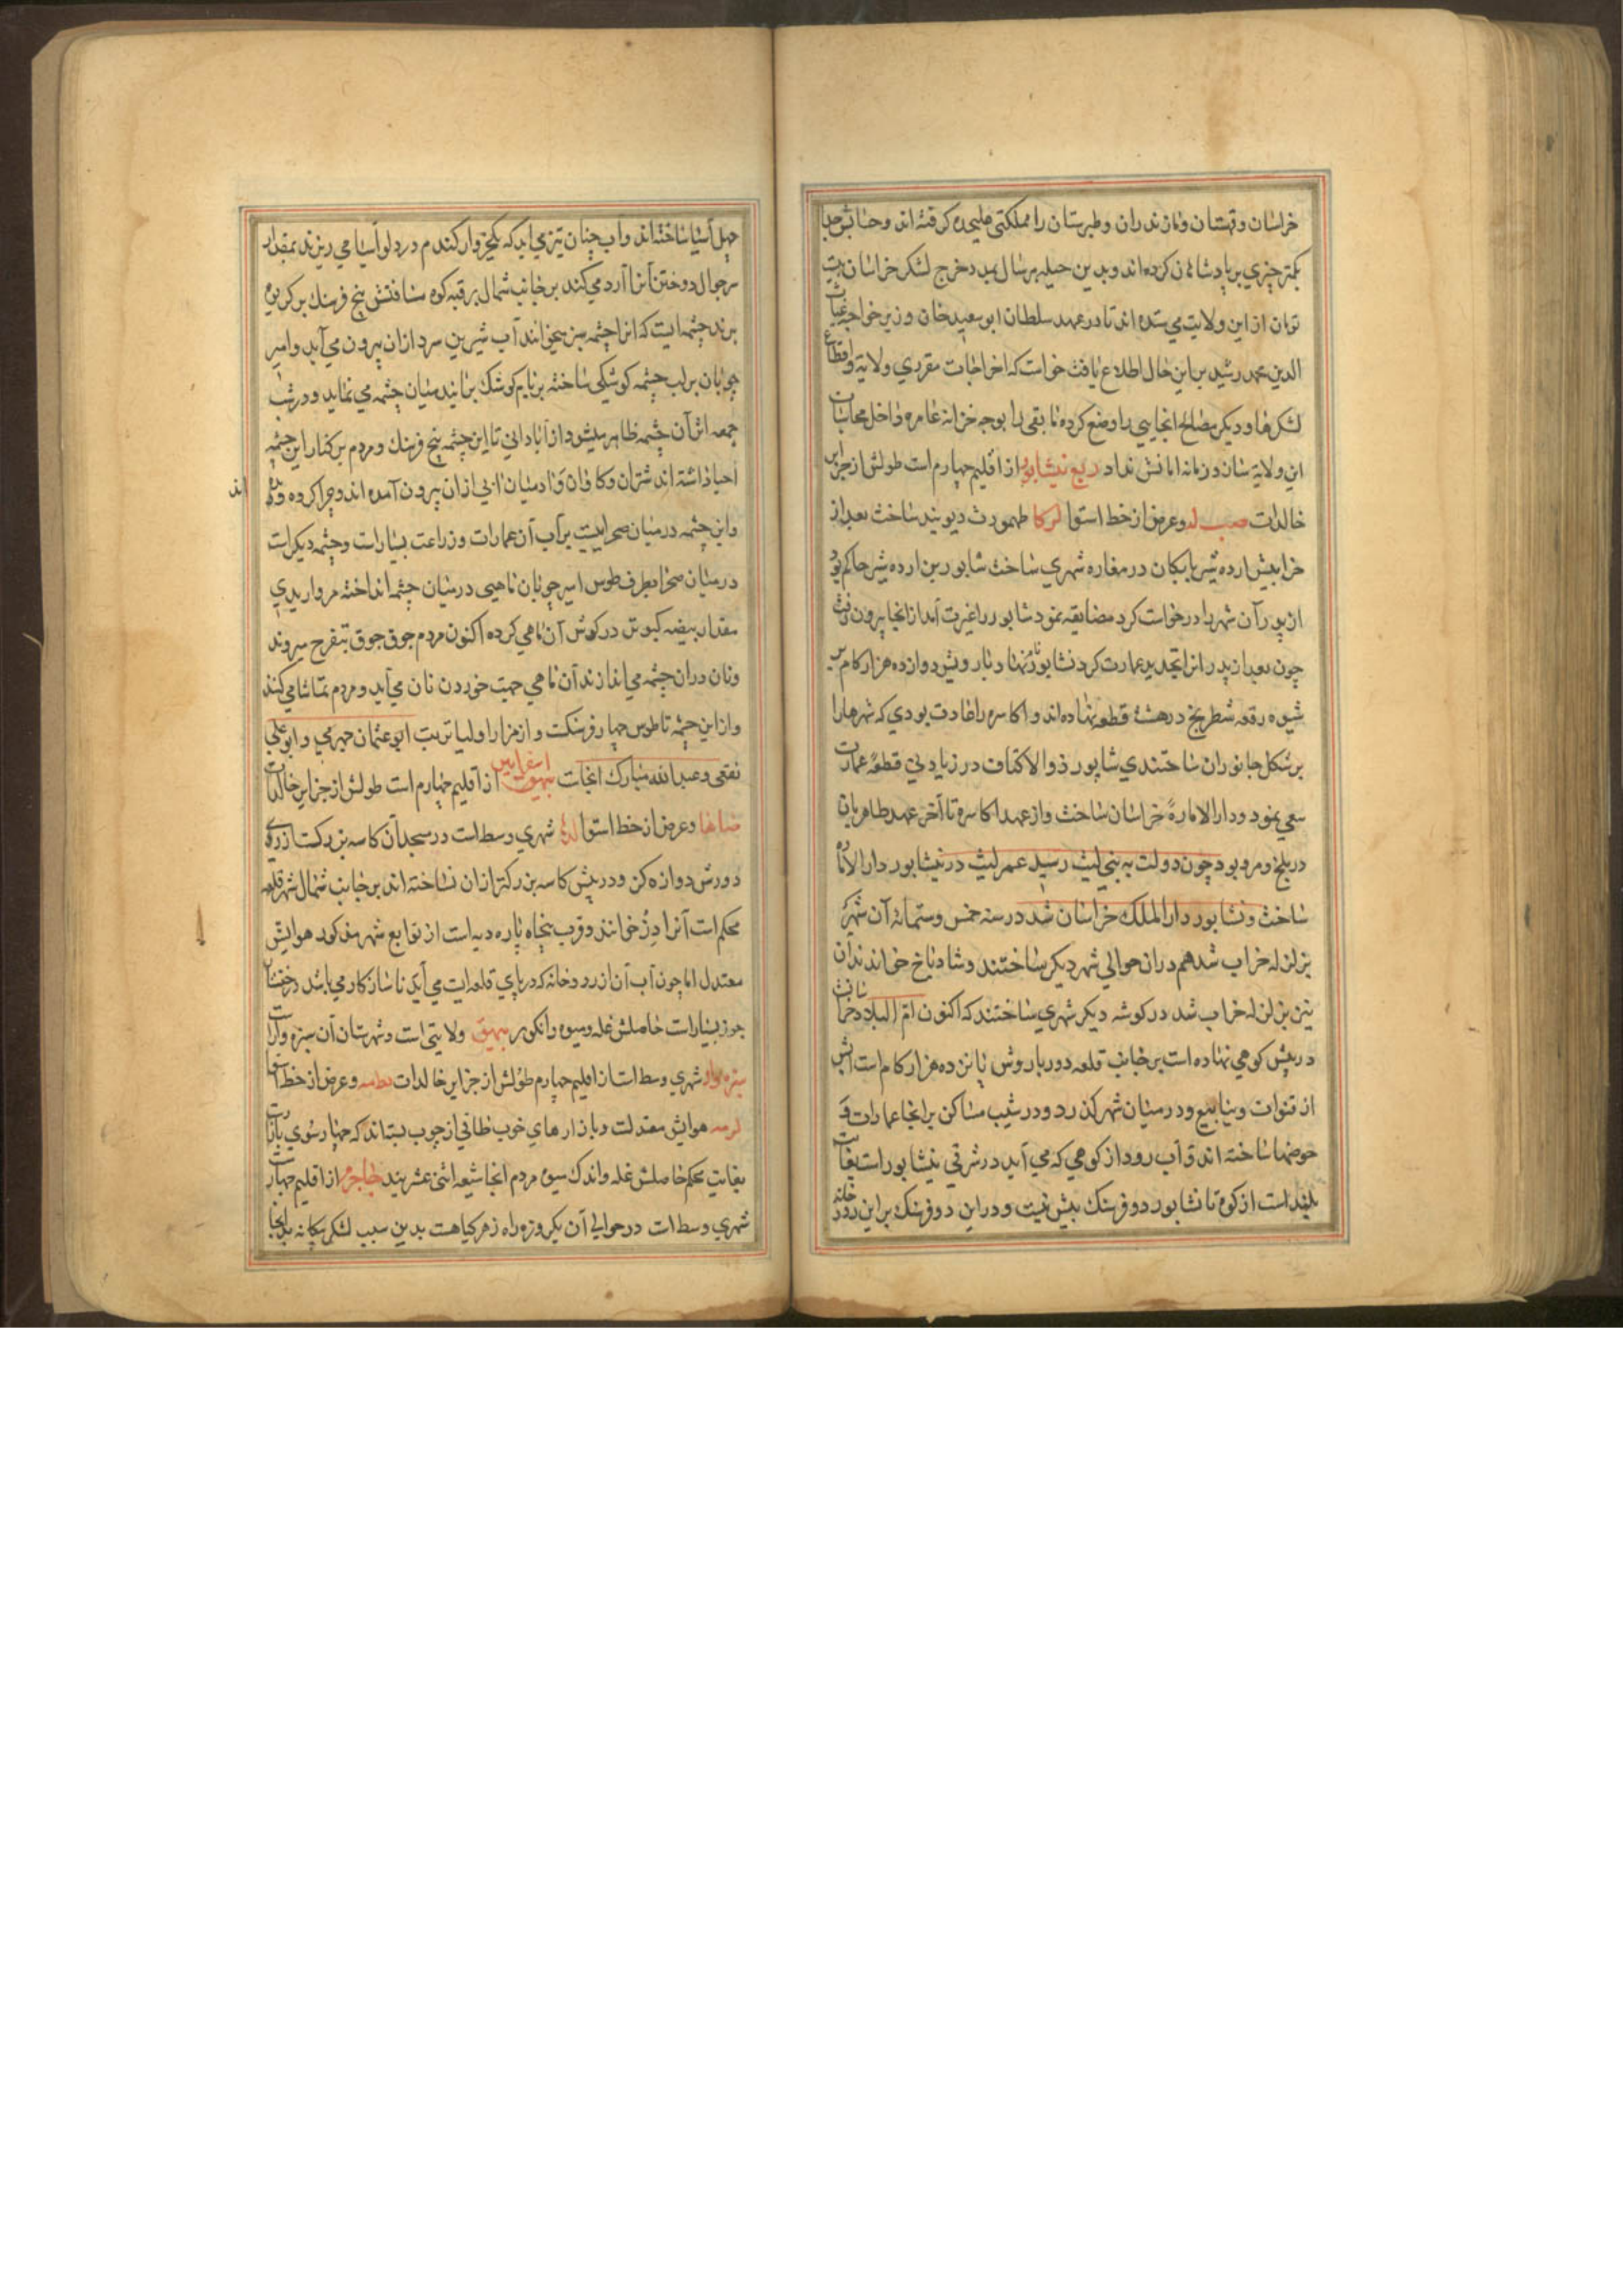 خراسان و قهستان و مازندران و طبرستان را مملکتی علیحده کرفته اند و حسابش جدا
بکمتر چیزی بر پادشاهان کرده اند و بدین حیله هر سال بمدد خرج لشکر خراسان بیست
تومان از این ولایت می ستده اند تا در عهد سلطان ابو سعید خان وزیر خواجه غیاث
الدین محمد رشید بر این حال اطلاع یافت خواست که اخراجات مقرری ولایة و اقطاع
لشکرها و دیکر مصالح انجایی را وضع کرده تا بقی را بوجه خزانه عامره داخل محاسبات
این ولایة ستاند زمانه امانش نداد ربع نیشابور از اقلیم چهارم است طولش از جزایر
خالدات صب ل وعرض از خط استوا لو کا طهمورث دیوبند ساخت بعد از
خرابیش اردشیر بابکان در مفازه شهری ساخت شاپور بن اردشیر حاکم بود
از پدر آن شهر را درخواست کرد مضایقه نمود شاپور را غیرت آمد از انجا بیرون رفت
چون بعد از پدر انرا تجدید عمارت کرد نشابور نهاد بارویش دوازده هزار کام بر
شیوه رقعه شطرنج در هشت قطعه نهاده اند و اکاسره را عادت بودی که شهرها را
بر شکل جانوران ساختندی شاپور ذوالاکتاف در زیادتی قطعهٔ عمارت
سعی نمود و دار الامارهٔ خراسان ساخت و از عهد اکاسره تا آخر عهد طاهریان
در بلخ و مرو بود چون دولت به بنی لیث رسید عمر لیث در نیشابور دار الاماره
ساخت و نشابور دار الملک خراسان شد در سنه خمس و ستمائه آن شهر
بزلزله خراب شد هم در ان حوالی شهر دیکر ساختند و شادیاخ خواندند آن
نیز بزلزله خراب شد در کوشه دیکر شهری ساختند که اکنون ام البلاد خراسانست
در پیش کوهی نهاده است بر جانب قلعه دور باروش پانزده هزار کام است آبش
از قنوات و ینابیع و در میان شهر کذرد و در شیب مساکن بر انجا عمارات و
حوضها ساخته اند و آب رود از کوهی که می آید در شرقی نیشابور است بغایت
بلند است از کوه تا نشابور دو فرسنک بیش نیست و در این دو فرسنک بر این رودخانه
چهل آسیا ساخته اند و آب چنان تیز می آید که یکخروار کندم در دلو آسیا می ریزند بمقدار
سر جوال دوختن آنرا آرد می کند بر جانب شمال برقبه کوه مسافتش پنج فرسنک بر کریوه
برند چشمه ایست که انرا چشمه سبز میخوانند آب شیرین سرد از ان بیرون می آید و امیر
چوپان بر لب چشمه کوشکی ساخته بر بام کوشک بر آیند میان چشمه می نماید و در شب
جمعه اثر آن چشمه ظاهر میشود از آبادانی تا این چشمه پنج فرسنک و مردم بر کنار این چشمه
احیا داشته اند شتران و کاوان و آدمیان آبی از ان بیرون آمده اند و چرا کرده و رفته اند
و این چشمه در میان صحرائیست بر آب آن عمارات و زراعت بسیار است و چشمه دیکر است
در میان صحرا بطرف طوس امیر چوپان ماهیی در میان چشمه انداخته مرواریدی
مقدار بیضه کبوتر در کوش آن ماهی کرده اکنون مردم جوق جوق بتفرج میروند
و نان در ان چشمه می اندازند آن ماهی جهت خوردن نان می آید و مردم تماشا می کنند
و از این چشمه تا طوس چهار فرسنکست و از مزار اولیا تربت ابو عثمان حیری و ابو علی
ثقفی و عبد الله مبارک انجاست بیهق اسفراین از اقلیم چهارم است طولش از جزایر خالدات
وعرض از خط استوا شهری وسط است در مسجد آن کاسه بزرکست از روی
دورش دوازه کز و در پیش کاسه بزرکتر از ان نساخته اند بر جانب شمال شهر قلعه
محکم است آنرا دز خوانند و قرب پنجاه پاره دیه است از توابع شهر مذکور هوایش
معتدل اما چون آب آن از رودخانه که در پای قلعه است می آید ناسازکار می باشد درختان
جوز بسیار است حاصلش غله و میوه و انکور بیهق ولایتی است و شهرستان آن سبزه وار است
سبزه وار شهری وسط است از اقلیم چهارم طولش از جزایر خالدات وعرض از خط استوا
لو مه هوایش معتدلست و بازارهای خوب طاقی از چوب بسته اند که چهارسوی بازار است
بغایت محکم حاصلش غله و اندک میوه مردم انجا شیعه اثنی عشریند جاجرم از اقلیم چهارست
شهری وسط است در حوالی آن یکروزه راه زهر کیاهست بدین سبب لشکر بیکانه بدانجا